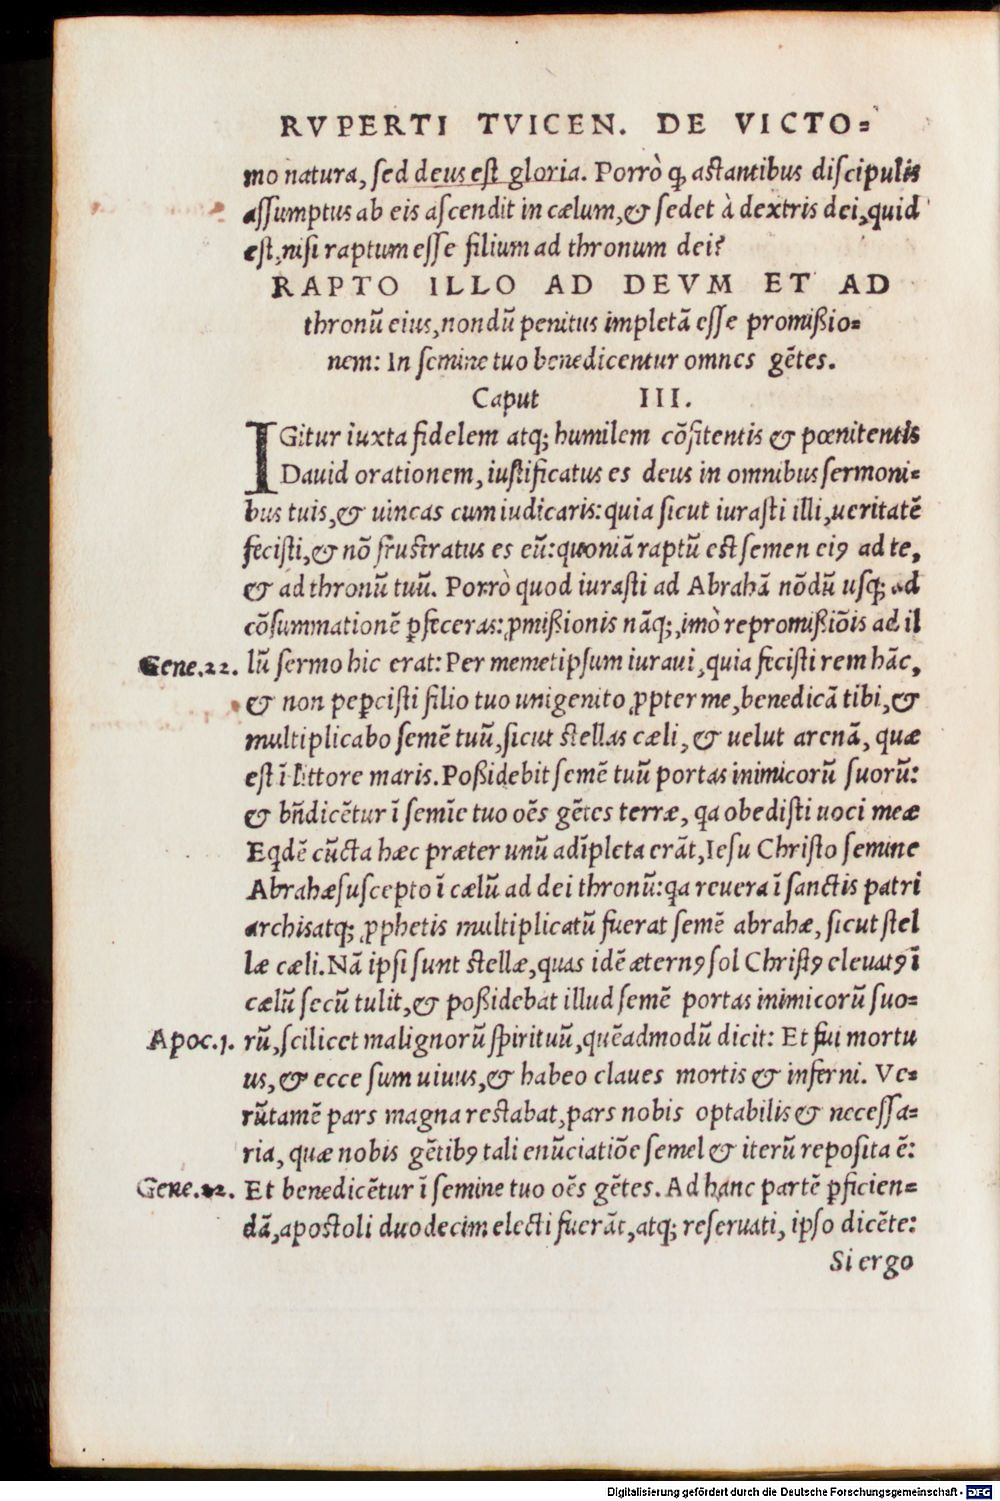 RVPERTI TVICEN. DE VICTO=
mo natura, sed deus est gloria. Porrò ꝙ astantibus discipulis
assumptus ab eis ascendit in cælum, & sedet à dextris dei, quid
est, nisi raptum esse filium ad thronum dei?
RAPTO ILLO AD DEVM ET AD
thronũ eius, nondũ penitus impletã esse promißio=
nem: In semine tuo benedicentur omnes gẽtes.
Caput III.
IGitur iuxta fidelem atq; humilem cõfitentis & pœnitentis
Dauid orationem, iustificatus es deus in omnibus sermoni=
bus tuis, & uincas cum iudicaris: quia sicut iurasti illi, ueritatẽ
fecisti, & nõ frustratus es eũ: quoniã raptũ est semen eiꝰ ad te,
& ad thronũ tuũ. Porrò quod iurasti ad Abrahã nõdũ usq; ad
cõsummationẽ ꝑfeceras: ꝓmißionis nãq;, imò repromißiõis ad il
Gene.22. lũ sermo hic erat: Per memetipsum iuraui, quia fecisti rem hãc,
& non peꝑcisti filio tuo unigenito ꝓpter me, benedicã tibi, &
multiplicabo semẽ tuũ, sicut stellas cæli, & uelut arenã, quæ
est ĩ littore maris. Poßidebit semẽ tuũ portas inimicorũ suorũ:
& bñdicẽtur ĩ semĩe tuo oẽs gẽtes terræ, qa obedisti uoci meæ
Eqdẽ cũcta hæc præter unũ adĩpleta erãt, Iesu Christo semine
Abrahæ suscepto ĩ cælũ ad dei thronũ: qa reuera ĩ sanctis patri
archis atq; ꝓphetis multiplicatũ fuerat semẽ abrahæ, sicut stel
læ cæli. Nã ipsi sunt stellæ, quas idẽ æternꝰ sol Christꝰ eleuatꝰ ĩ
cælũ secũ tulit, & poßidebat illud semẽ portas inimicorũ suo=
Apoc.1. rũ, scilicet malignorũ spirituũ, quẽadmodũ dicit: Et fui mortu
us, & ecce sum uiuus, & habeo claues mortis & inferni. Ve=
rũtamẽ pars magna restabat, pars nobis optabilis & necessa=
ria, quæ nobis gẽtibꝰ tali enũciatiõe semel & iterũ reposita ẽ:
Gene.22. Et benedicẽtur ĩ semine tuo oẽs gẽtes. Ad hanc partẽ ꝑficien=
dã, apostoli duodecim electi fuerãt, atq; reseruati, ipso dicẽte:
Si ergo
Digitalisierung gefördert durch die Deutsche Forschungsgemeinschaft - DFG